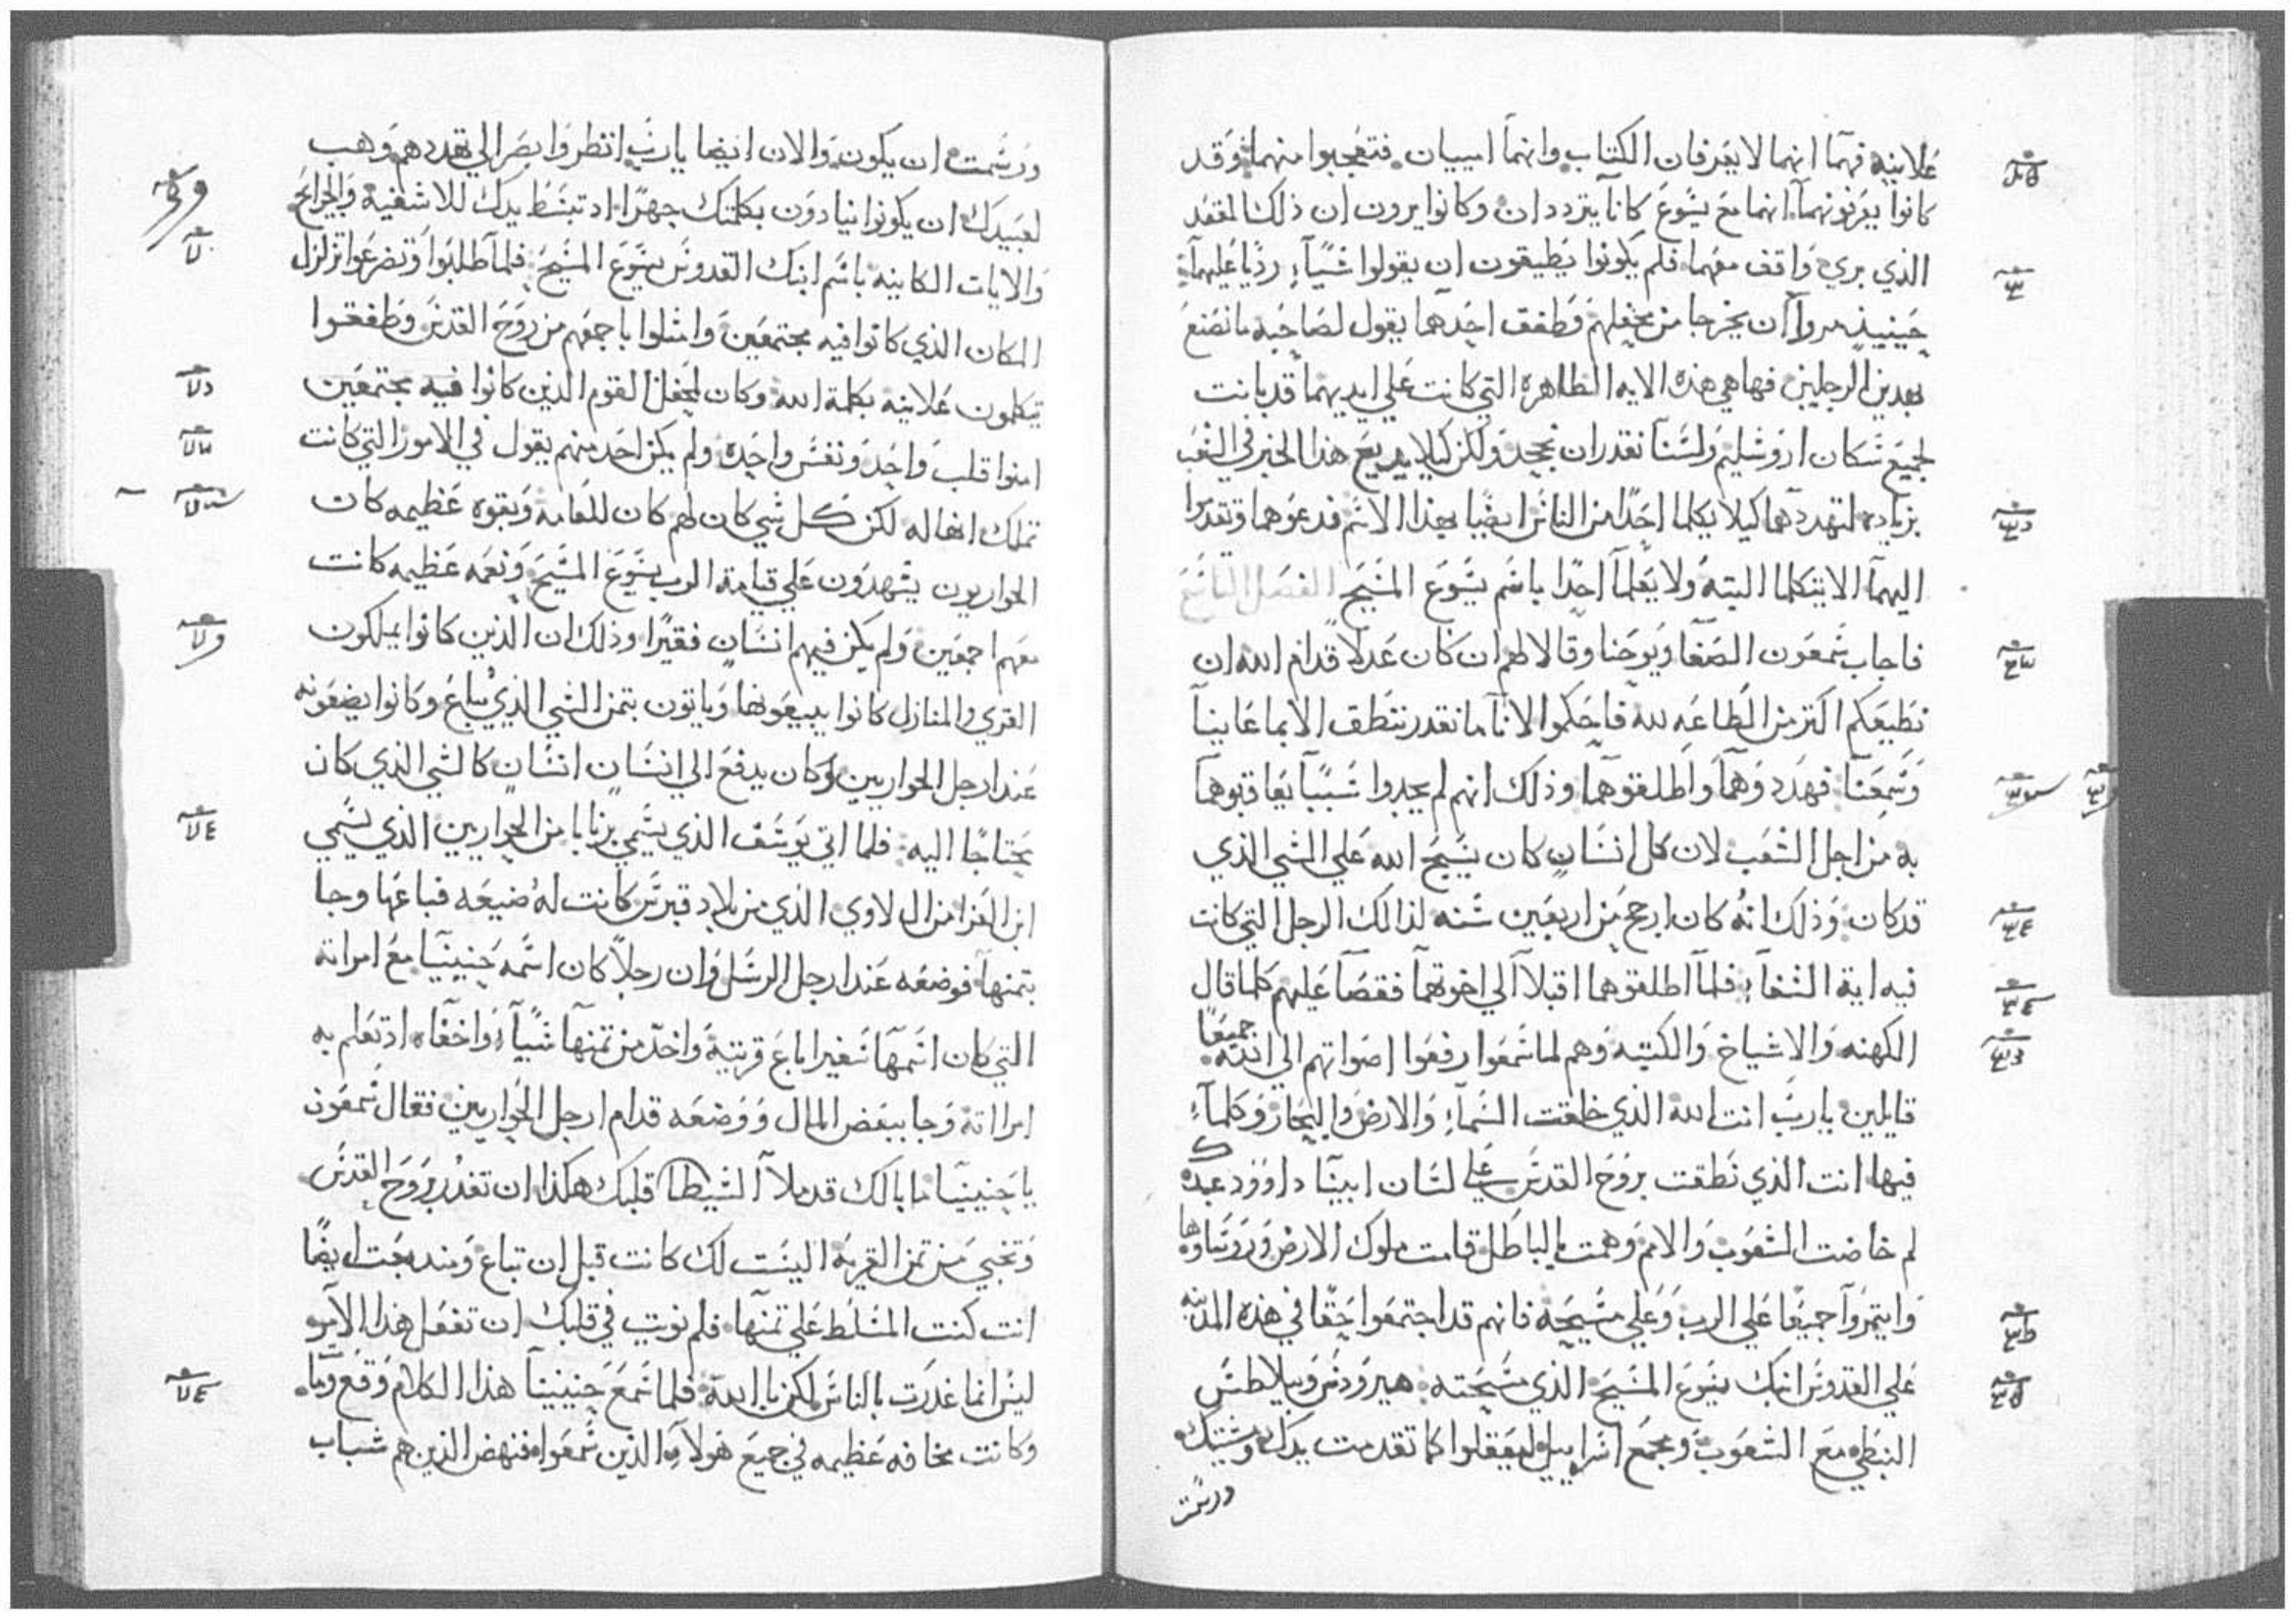 علانيه فهما انهما لا يعرفان الكتاب وانهما اميان فتعجبوا منهما وقد
كانوا يعرفونهما انهما مع يسوع كانا يترددان وكانوا يرون ان ذلك المقعد
الذي بري واقف معهما فلم يكونوا يطيقون ان يقولوا شيآء رديا عليهما
حينيذ امروا ان يخرجا من محفلهم وطفق احدهما يقول لصاحبه ما نصنع
بهذين الرجلين فها هي هذه الايه الظاهره التي كانت علي ايديهما قد بانت
لجميع سكان اروشليم ولسنا نقدر ان نجحد ولكن كيلا يذيع هذا الخبر في الشعب
بزياده لنتهددهما كيلا يكلما احدا من الناس ايضا بهذا الاسم فدعوهما وتقدموا
اليهما الا يتكلما البته ولا يعلما احدا باسم يسوع المسيح الفصل التاسع
فاجاب شمعون الصفا ويوحنا وقالا لهم ان كان عدلا قدام الله ان
نطيعكم اكتر من الطاعه لله فاحكموا لاننا ما نقدر ننطق الا بما عاينا
وسمعنا فهددوهما واطلقوهما وذلك انهم لم يجدوا سببا يعاقبوهما
به من اجل الشعب لان كل انسان كان يسبح الله علي الشي الذي
قد كان وذلك انه كان ارجح من اربعين سنه لذالك الرجل التي كانت
فيه اية الشفاء فلما اطلقوهما اقبلا الي اخوتهما فقصا عليهم كلما قال
الكهنه والاشياخ والكتبه وهم لما سمعوا رفعوا اصواتهم الي الله جميعا
قايلين يارب انت الله الذي خلقت السماء والارض والبحار وكلما
فيها انت الذي نطقت بروح القدس علي لسان ابينا داوود عبدك
لم خاضت الشعوب والامم وهمت بالباطل قامت ملوك الارض وروساوها
وايتمروا جميعا علي الرب وعلي مسيحه فانهم قد اجتمعوا حقا في هذه المدينه
علي القدوس ابنك يسوع المسيح الذي مسحته هيرودس وبيلاطس
النبطي مع الشعوب ومجمع اسراييل ليفعلوا كما تقدمت يدك ومشيتك
ورسمت
ورسمت ان يكون والان ايضا يارب انظر وابصر الي تهددهم وهب
لعبيدك ان يكونوا ينادون بكلمتك جهرا اد تبسط يدك للاشفيه والجرايح
والايات الكاينه باسم ابنك القدوس يسوع المسيح فلما طلبوا وتضرعوا تزلزل
المكان الذي كانوا فيه مجتمعين وامتلوا باجمعهم من روح القدس وطفقوا
يتكلمون علانيه بكلمة الله وكان لمحفل القوم الذين كانوا فيه مجتمعين
امنوا قلب واحد ونفس واحده ولم يكن احد منهم يقول في الامور التي كانت
تملك انها له لكن كل شي كان لهم كان للعامه وبقوه عظيمه كان
الحواريون يشهدون علي قيامة الرب يسوع المسيح ونعمه عظيمه كانت
معهم اجمعين ولم يكن فيهم انسان فقيرا وذلك ان الذين كانوا يملكون
القري والمنازل كانوا يبيعونها وياتون بتمن الشي الذي يباع وكانوا يضعونه
عند ارجل الحواريين وكان يدفع الي انسان انسان كالشي الذي كان
يحتاجا اليه فلما اتي يوسف الذي يسمي برنابا من الحواريين الذي يسمي
ابن العزا من اللاوي الذي من بلاد قبرس كانت له ضيعه فباعها وجا
بتمنها فوضعه عند ارجل الرسل وان رجلا كان اسمه حنينيا مع امراته
التي كان اسمها شفيرا باع قريته واخد من تمنها شيآء واخفاه اد تعلم به
امرااته وجا ببعض المال ووضعه قدام ارجل الحواريين فقال شمعون
يا حنينيا ما بالك قد ملا الشيطا قلبك هكذا ان تغدر بروح القدس
وتخبي من تمن القريه اليست لك كانت قبل ان تباع ومند بيعت ايضا
انت كنت المسلط علي تمنها فلم نويت في قلبك ان تفعل هذا الامر
ليس انما غدرت بالناس لكن بالله فلما سمع حنينيا هذا الكلام وقع ومات
وكانت مخافه عظيمه في جميع هولاء الذين سمعوا فنهض الذين هم شباب